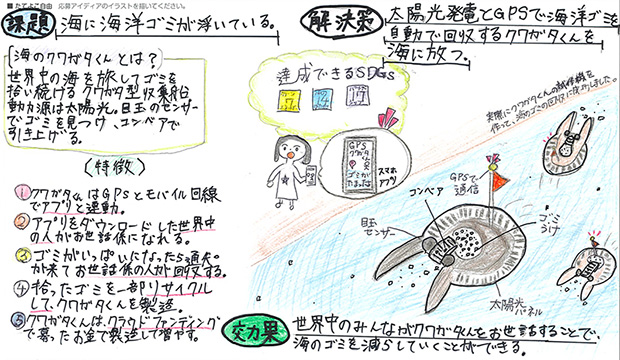 ■たてよこ自由 応募アイディアのイラストを描いてください。
課題
海に海洋ゴミが浮いている。
解決策
太陽光発電とGPSで海洋ゴミを
自動で回収するクワガタくんを
海に放つ。
海のクワガタくんとは?
世界中の海を旅してゴミを
拾い続けるクワガタ型収集船
動力源は太陽光。目玉のセンサー
でゴミを見つけ、コンベアで
引き上げる。
(特徴)
①クワガタくんはGPSとモバイル回線
でアプリと連動。
②アプリをダウンロードした世界中
の人がお世話係になれる。
③ゴミがいっぱいになったら通知
が来てお世話係の人が回収する。
④拾ったゴミを一部リサイクル
してクワガタくんを製造。
⑤クワガタくんは、クラウドファンディング
で募ったお金で製造して増やす。
達成できるSDGs
7
14
17
GPS
クワガタ
ゴミが
たまったよ
スマホ
アプリ
実際にクワガタくんの試作機を
作って、海のゴミの回収に成功しました。
GPSで
通信
コンベア
目玉
センサー
ゴミ
うけ
太陽光
パネル
効果
世界中のみんながクワガタくんをお世話することで、
海のゴミを減らしていくことができる。